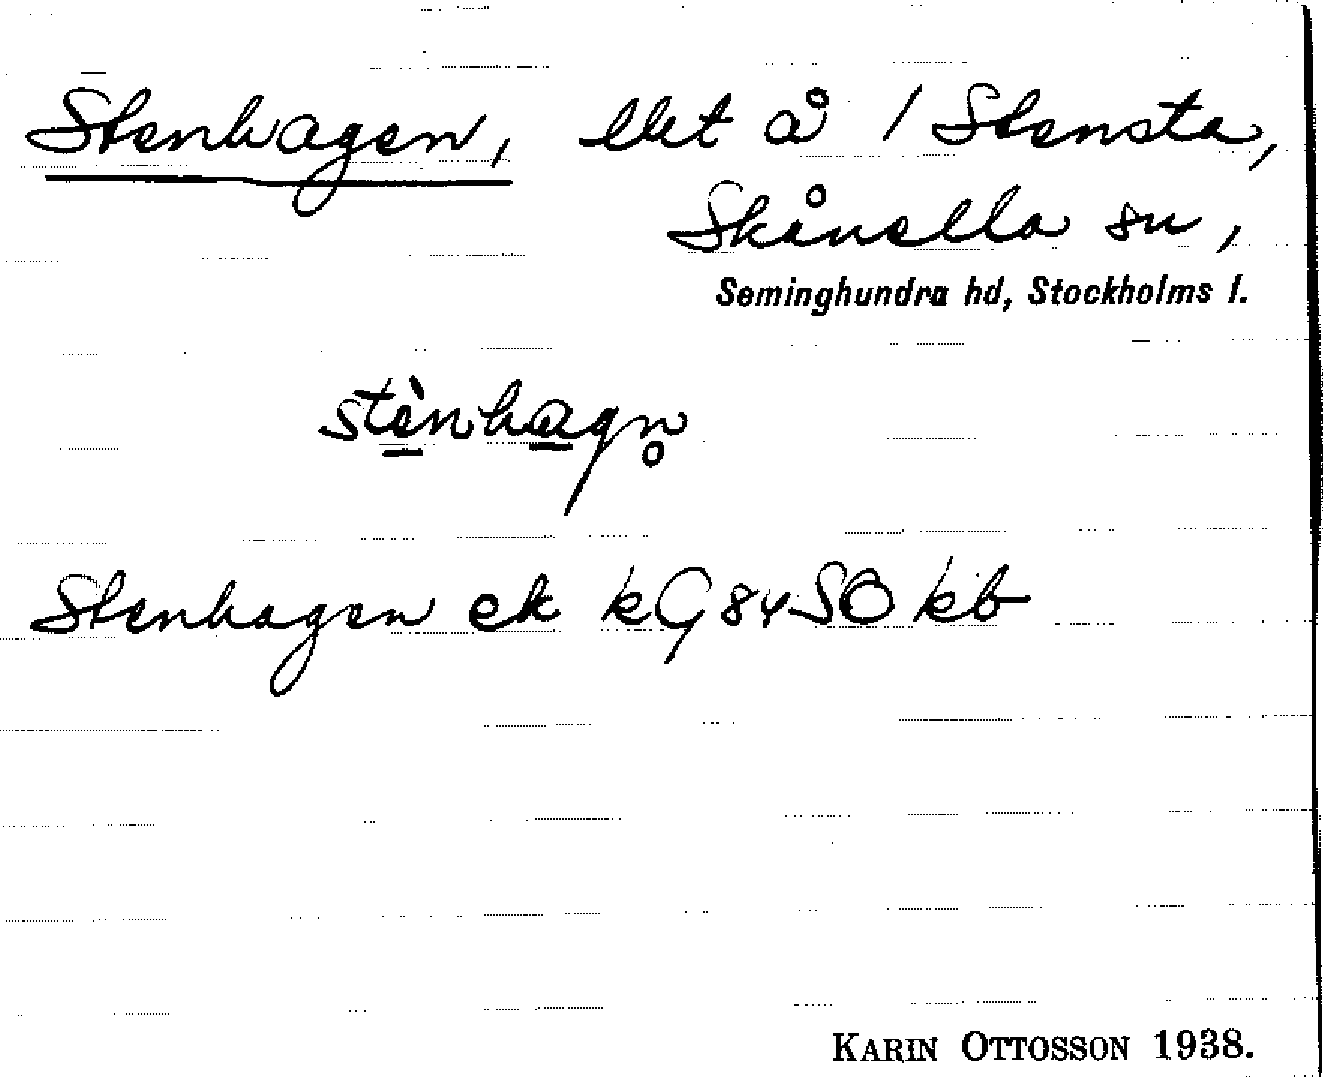 Stenhagen, lht å 1 Stensta,
Skånella sn,
Seminghundra hd, Stockholms l.
stènhagn̥
Stenhagen ek kG 84 SO kb
KARIN OTTOSSON 1938.